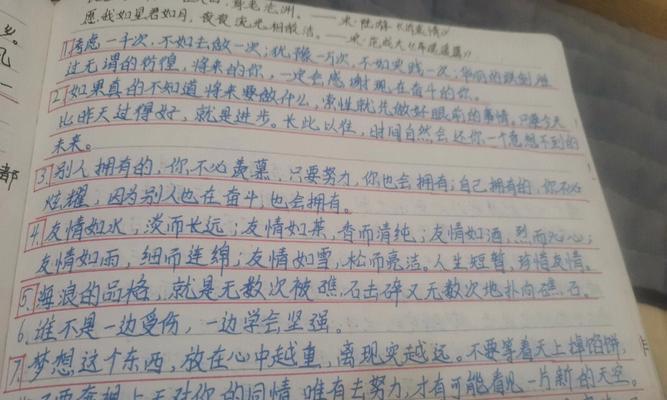 愿我如星君如月,夜夜流光相皎洁。——宋·范成大《车遥遥篇》
1.考虑一千次,不如去做一次;犹豫一万次,不如实践一次;华丽的跌倒,胜
过无谓的彷徨,将来的你,一定会感谢现在奋斗的你。
2.如果真的不知道将来要做什么,索性就先做好眼前的事情。只要今天
比昨天过得好,就是进步。长此以往,时间自然会还你一个意想不到的
未来。
3.别人拥有的,你不必羡慕,只要努力,你也会拥有;自己拥有的,你不必
炫耀,因为别人也在奋斗,也会拥有。
4.友情如水,淡而长远;友情如茶,香而清纯;友情如酒,烈而沁心;
友情如雨,细而连绵;友情如雪,松而亮洁。人生短暂,珍惜友情。
5.海浪的品格,就是无数次被礁石击碎又无数次地扑向礁石。
6.谁不是一边受伤,一边学会坚强。
7.梦想这个东西,放在心中越重,离现实越远。不要等着天上掉馅饼,
不要奢想上天对你的同情,唯有去努力,才有可能看见一片新的天空。